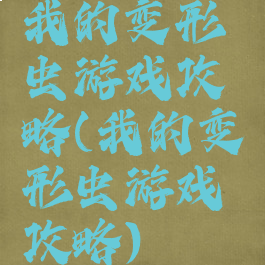 我的变形
虫游戏攻
略(我的变
形虫游戏
攻略)